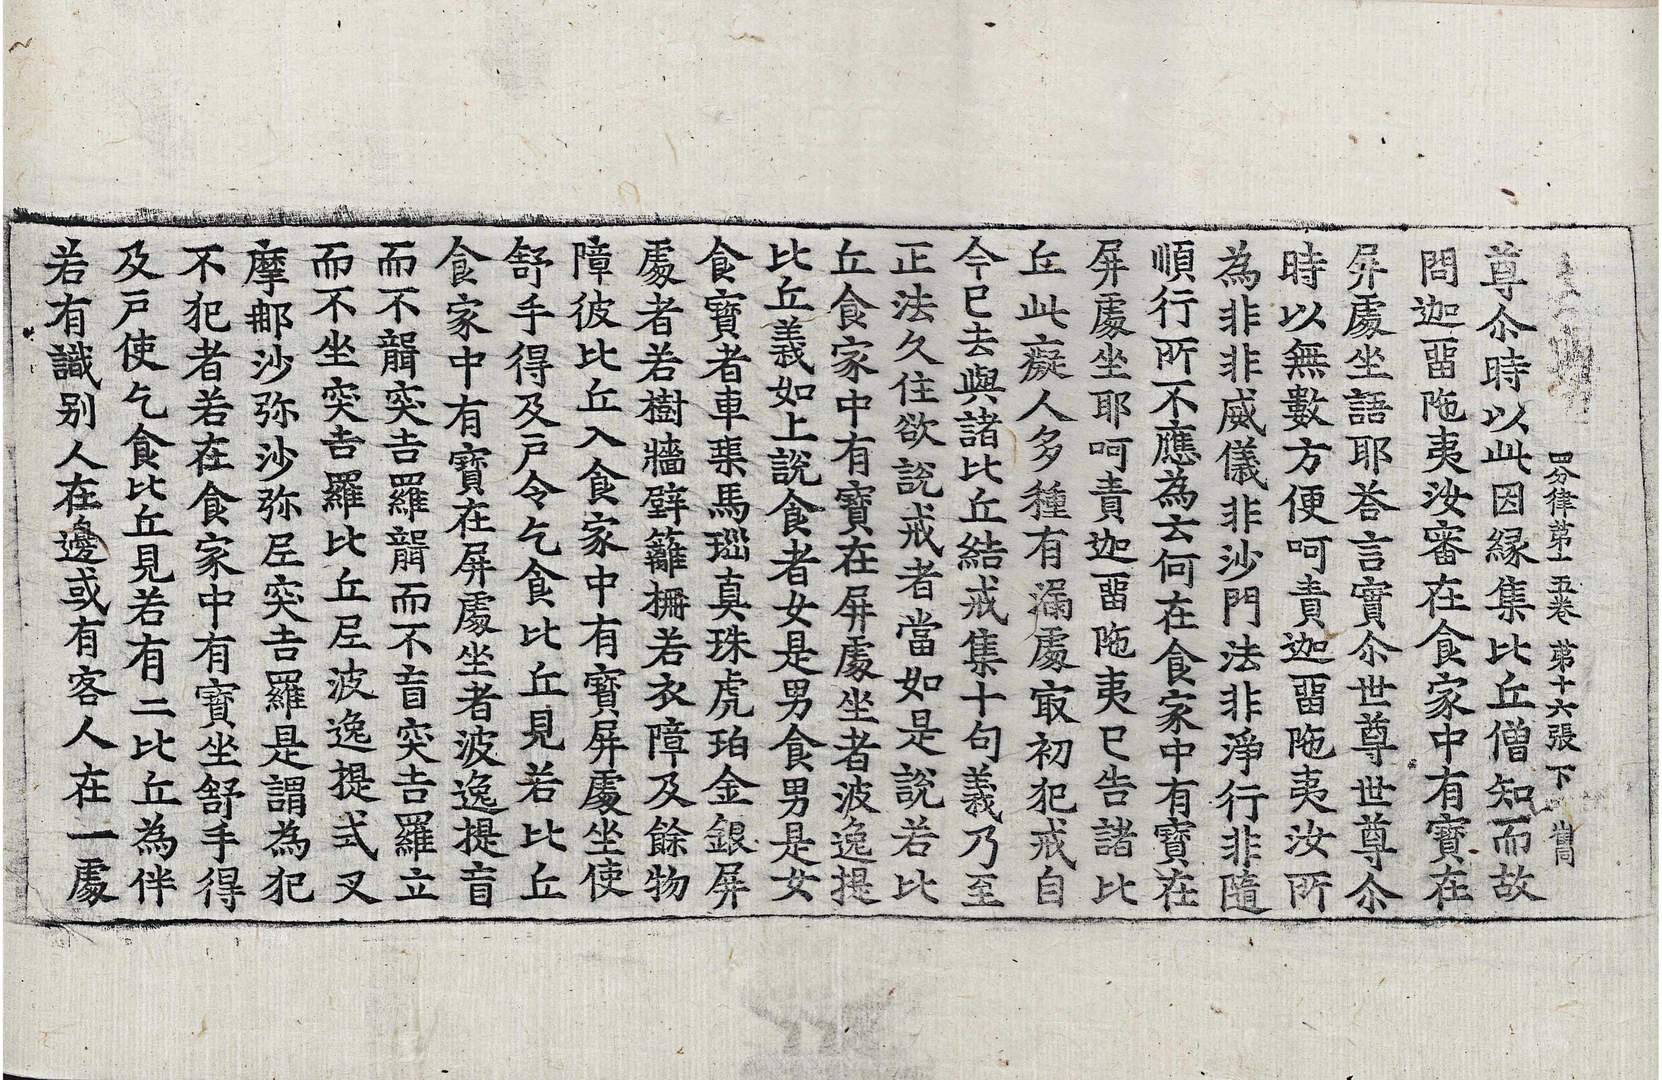 四分律第十五卷 第十六張 下
尊尒時以此因緣集比丘僧知而故
問迦畱陁夷汝審在食家中有寶在
屛處坐語耶荅言實尒世尊世尊尒
時以無數方便呵責迦畱陁夷汝所
為非非威儀非沙門法非淨行非隨
順行所不應為云何在食家中有寶在
屛處坐耶呵責迦畱陁夷已告諸比
丘此癡人多種有漏處㝡初犯戒自
今已去與諸比丘結戒集十句義乃至
正法久住欲說戒者當如是說若比
丘食家中有寶在屛處坐者波逸提
比丘義如上說食者女是男食男是女
食寶者車璖馬瑙真珠虎珀金銀屛
處者若樹牆壁籬柵若衣障及餘物
障彼比丘入食家中有寶屛處坐使
舒手得及戶令乞食比丘見若比丘
食家中有寶在屛處坐者波逸提盲
而不聾突吉羅聾而不盲突吉羅立
而不坐突吉羅比丘尼波逸提式叉
摩那沙弥沙弥尼突吉羅是謂為犯
不犯者若在食家中有寶坐舒手得
及戶使乞食比丘見若有二比丘為伴
若有識别人在邊或有客人在一處